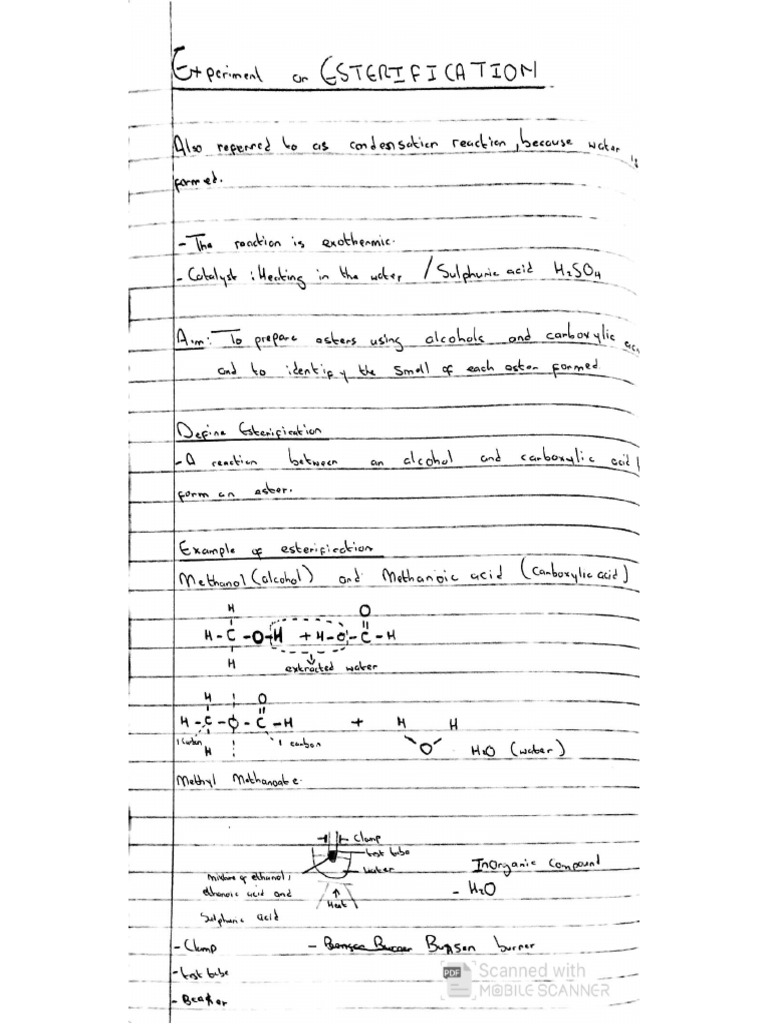 Experiment on ESTERIFICATION
Also referred to as condensation reaction, because water is
formed.
- The reaction is exothermic.
- Catalyst : Heating in the water / Sulphuric acid H₂SO₄
Aim: To prepare esters using alcohols and carboxylic
and to identify the smell of each ester formed
Define Esterification
- A reaction between an alcohol and carboxylic acid
form an ester.
Example of esterification
Methanol (alcohol) and Methanoic acid (Carboxylic acid)
H O
H-C-O-H + H-O-C-H
H
extracted water
H O
H-C-O-C-H + H H
1 carbon H 1 carbon O H₂O (water)
Methyl Methanoate.
Clamp
test tube
water
Inorganic Compound
mixture of ethanol,
ethanoic acid and
Sulphuric acid
Heat
- H₂O
- Clamp - Bunsen burner
- test tube
- Beaker
PDF Scanned with
MOBILE SCANNER